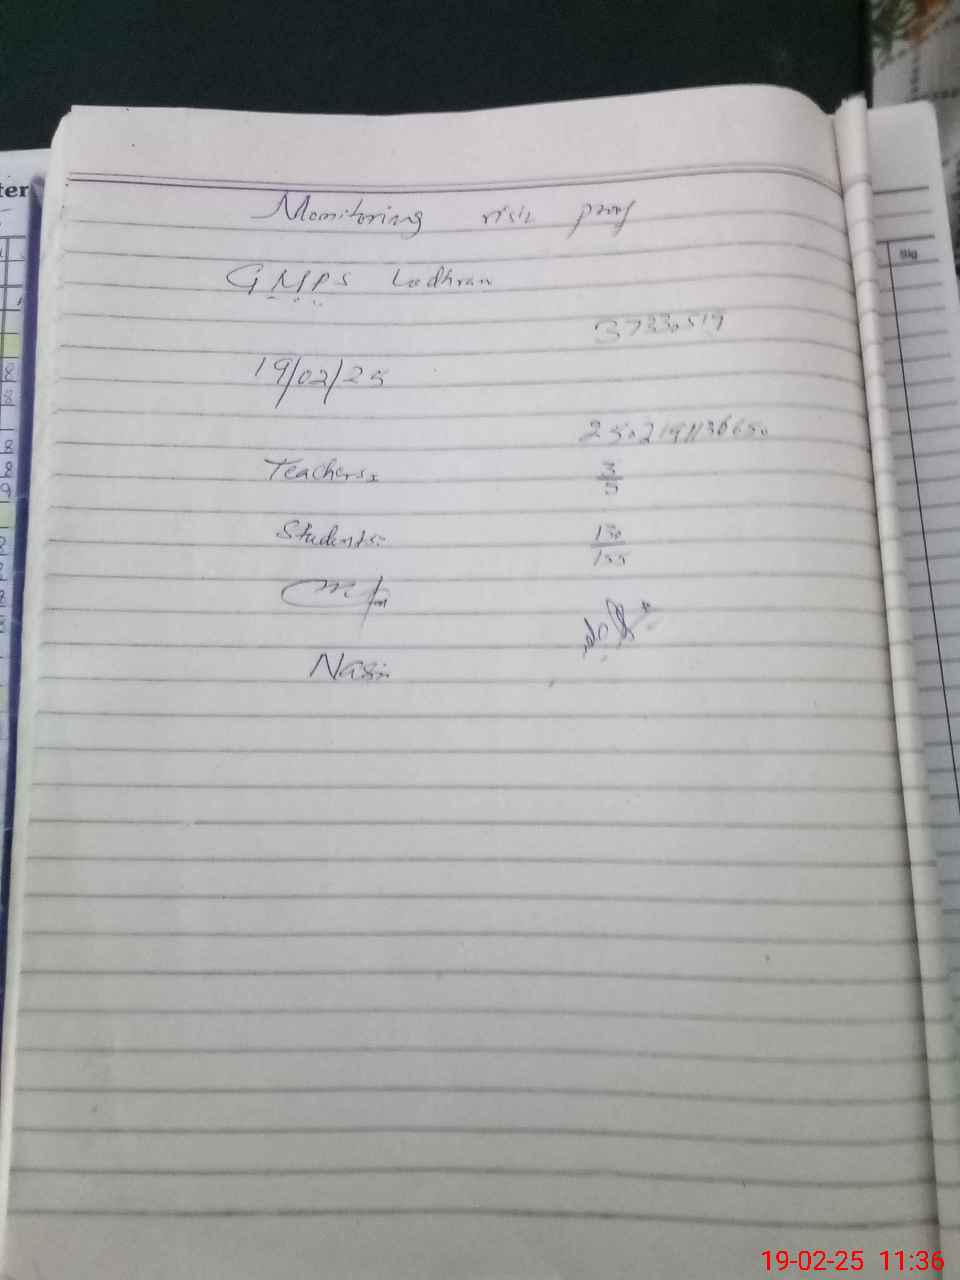 ter
Sig
Monitoring visit proof
GMPS Lodhran
37330519
19/02/25
2502191136650
Teachers:
3
5
Students:
130
155
Nasir
19-02-25 11:36